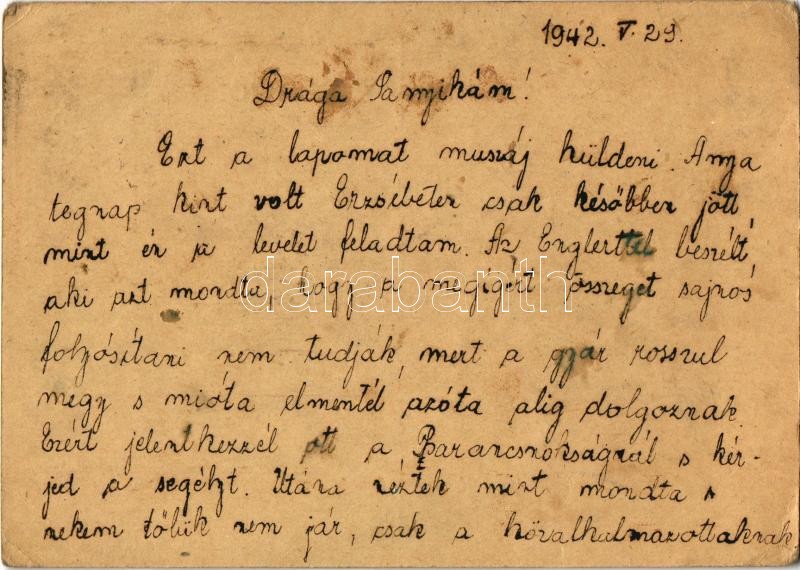 1942. V. 29.
Drága Sanyikám!
Ezt a lapomat muszáj küldeni. Anya
tegnap kint volt Erzsébeten csak később jött
mint én a levelet feladtam. Az Englerttel beszélt
aki azt mondta, hogy a megigért összeget sajnos
folyósítani nem tudják, mert a gyár rosszul
megy s mióta elmentél azóta alig dolgoznak.
Ezért jelentkezzél ott a Parancsnokságnál s kér-
jed a segélyt. Utána néztek mint mondta s
nekem tőlük nem jár, csak a közalkalmazottaknak
darabanth